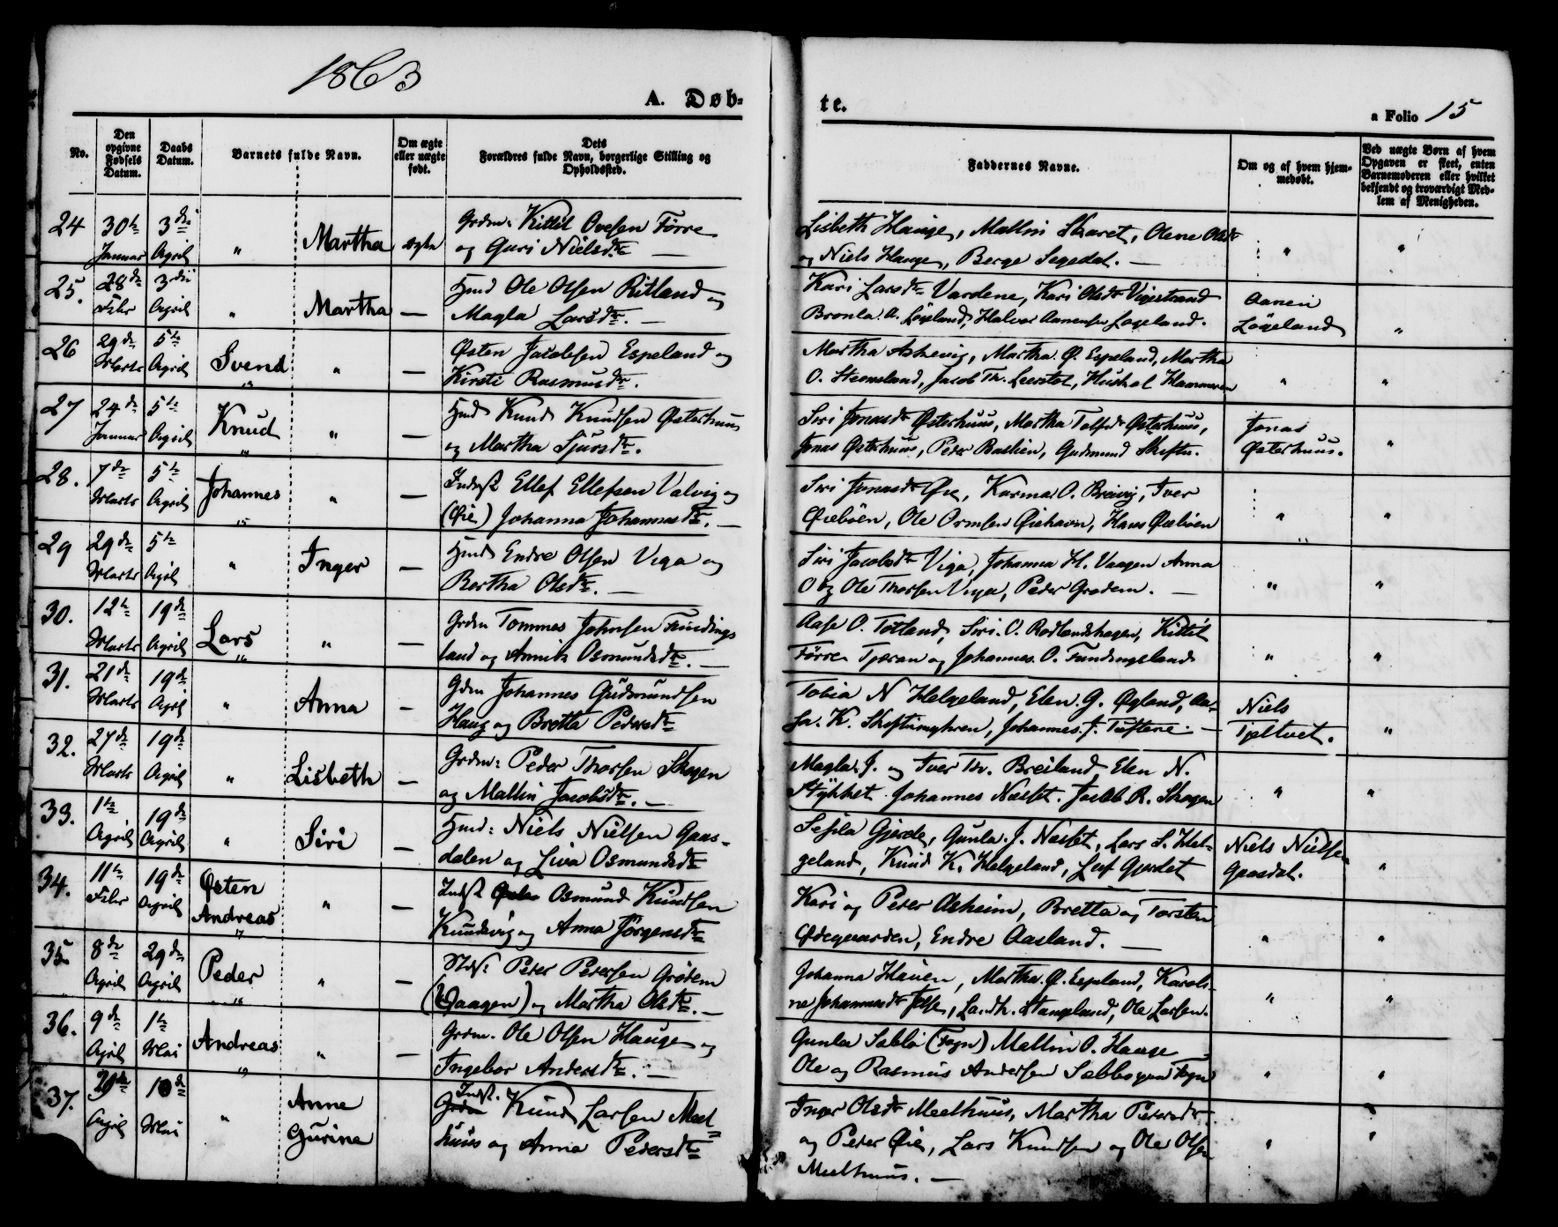 1863
A. Døbte.
a Folio 15
No.
Den opgivne Fødsels Datum.
Daabs Datum.
Barnets fulde Navn.
Om ægte eller uægte født.
Dets
Forældres fulde Navn, borgerlige Stilling og
Opholdssted.
Faddernes Navne.
Om og af hvem hjemmedøbt.
Ved uægte Børn af hvem
Opgaven er skeet, enten
Barnemoderen eller hvilket
bekjendt og troværdigt Medlem af Menigheden.
24 30te Januar 3die April " Martha ægte
Grdm: Kittil Ovesen Førre
og Guri Nielsdtr. —
Lisbeth Hauge, Mallin Skaret, Olene Olsdtr
og Niels Hauge, Berge Segedal. —
" "
25. 28de Febr 3die April " Martha —
Hmd Ole Olsen Ritland og
Magla Larsdtr. —
Kari Larsdtr Vardene, Kari Olsdtr Vigestrand
A. Løgeland, Halvor Aanensen Løgeland.
Aanen
Løgeland "
26 29de Marts 5te April Svend 13 " —
Østen Jacobsen Espeland og
Kirsti Rasmusdtr.
Martha Askevig, Martha Ø. Espeland, Martha
O. Steensland, Jacob Th.
" "
27 24de Januar 5te April Knud 14 " —
Hmd Knud Knudsen Østerhuus
og Martha Sjursdtr.
Siri Jonasdtr Østerhuus, Martha Østerhuus,
Jonas Østerhuus, Peder Gudmund
Jonas
Østerhuus. "
28. 7de Marts 5te April Johannes 15 " —
Indst Ellef Ellefsen Valvig og
(Øie) Johanna Johannesdtr. —
Siri Jonasdtr Øie, Karina O. Breivig, Iver
Øiebøen, Ole Ormsen Øiehavn, Hans Øiebøen
" "
29 29de Marts 5te April " Inger —
Hmd Endre Olsen Viga og
Bertha Olsdtr. —
Siri Jacobsdtr Viga, Johanna H. Vaagen Anna
O og Ole Thorsen Viga, Peder Grødem. —
" "
30. 12te Marts 19de April Lars 16 " —
Grdm Tommes Johnsen Fundings
land og Annik Osmundsdtr. —
Aase O. Totland, Siri O. Rødlandshagen, Kittil
Førre Tjeran og Johannes O. Fundingsland
" "
31. 21de Marts 19de April " Anna —
Gdm Johannes Gudmundsen
Haug og Brette Pedersdtr
Tobia N Helgeland, Elen G. Øgland, Aa-
sa K. Skeftismyhren, Johannes J. Tuftene. —
Niels
Tjeltvet. "
32. 27de Marts 19de April " Lisbeth —
Grdm: Peder Thorsen Skogen
og Mallin Jacobsdtr. —
Magla J. og Iver Th. Breiland, Elen N.
Stykket Johannes Næsset. Jacob R. Skogen
" "
33. 1te April 19de April " Siri —
Hmd: Niels Nielsen Gaas-
dalen og Liva Osmundsdtr
Sesila Gjerde, Gunla J. Nesset, Lars S. Hel-
geland, Knud K. Helgeland, Leif Gjerdet
Niels Nielse-
Gaasdal. "
34. 11te Febr 19de April Østen
Andreas 17 " —
Indst Osmund Knudsen
Kundsvig og Anna Jørgensdtr
Kari og Peder Asheim, Bretta og Torsten
Ødegaarden, Endre Aasland. —
" "
35 8de April 29de April Peder 18 " —
Peder Pedersen Grødem
(Vaagen) og Martha Olsdtr. —
Johanna Hauen, Martha Ø. Espeland, Karoli-
ne Johannesdtr Jelse, Stangeland, Ole Larsen.
" "
36. 9de April 1te Mai Andreas 19 " —
Grdm. Ole Olsen Hauge og
Ingebor Andersdtr. —
Gunla Sabbø (Sogn) Mallin O. Hauge
Ole og Rasmus Andersen
" "
37. April 10de Mai " Anne
Gurine
Indst. Knud Larsen Meel-
huus og Anna Pedersdtr
Inger Olsdtr Meelhuus, Martha Pedersdtr
og Peder Øie, Lars Knudsen og Ole Olsen
Meelhuus. —
" "